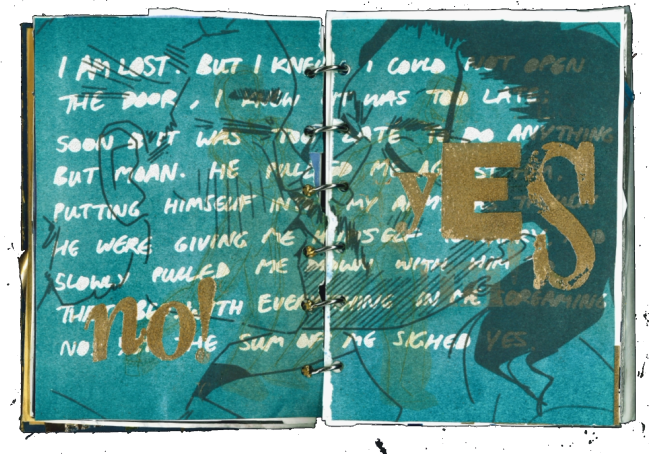 I AM LOST. BUT I KNEW I COULD NOT OPEN
THE DOOR, I KNEW IT WAS TOO LATE.
SOON IT WAS TOO LATE TO DO ANYTHING
BUT MOAN. HE PULLED ME AG
PUTTING HIMSELF IN MY
HE WERE GIVING ME HIMSELF
SLOWLY PULLED ME DOWN WITH HIM
THE EVERYTHING IN ME SCREAMING
NO THE SUM OF ME SIGHED YES.
yES
no!